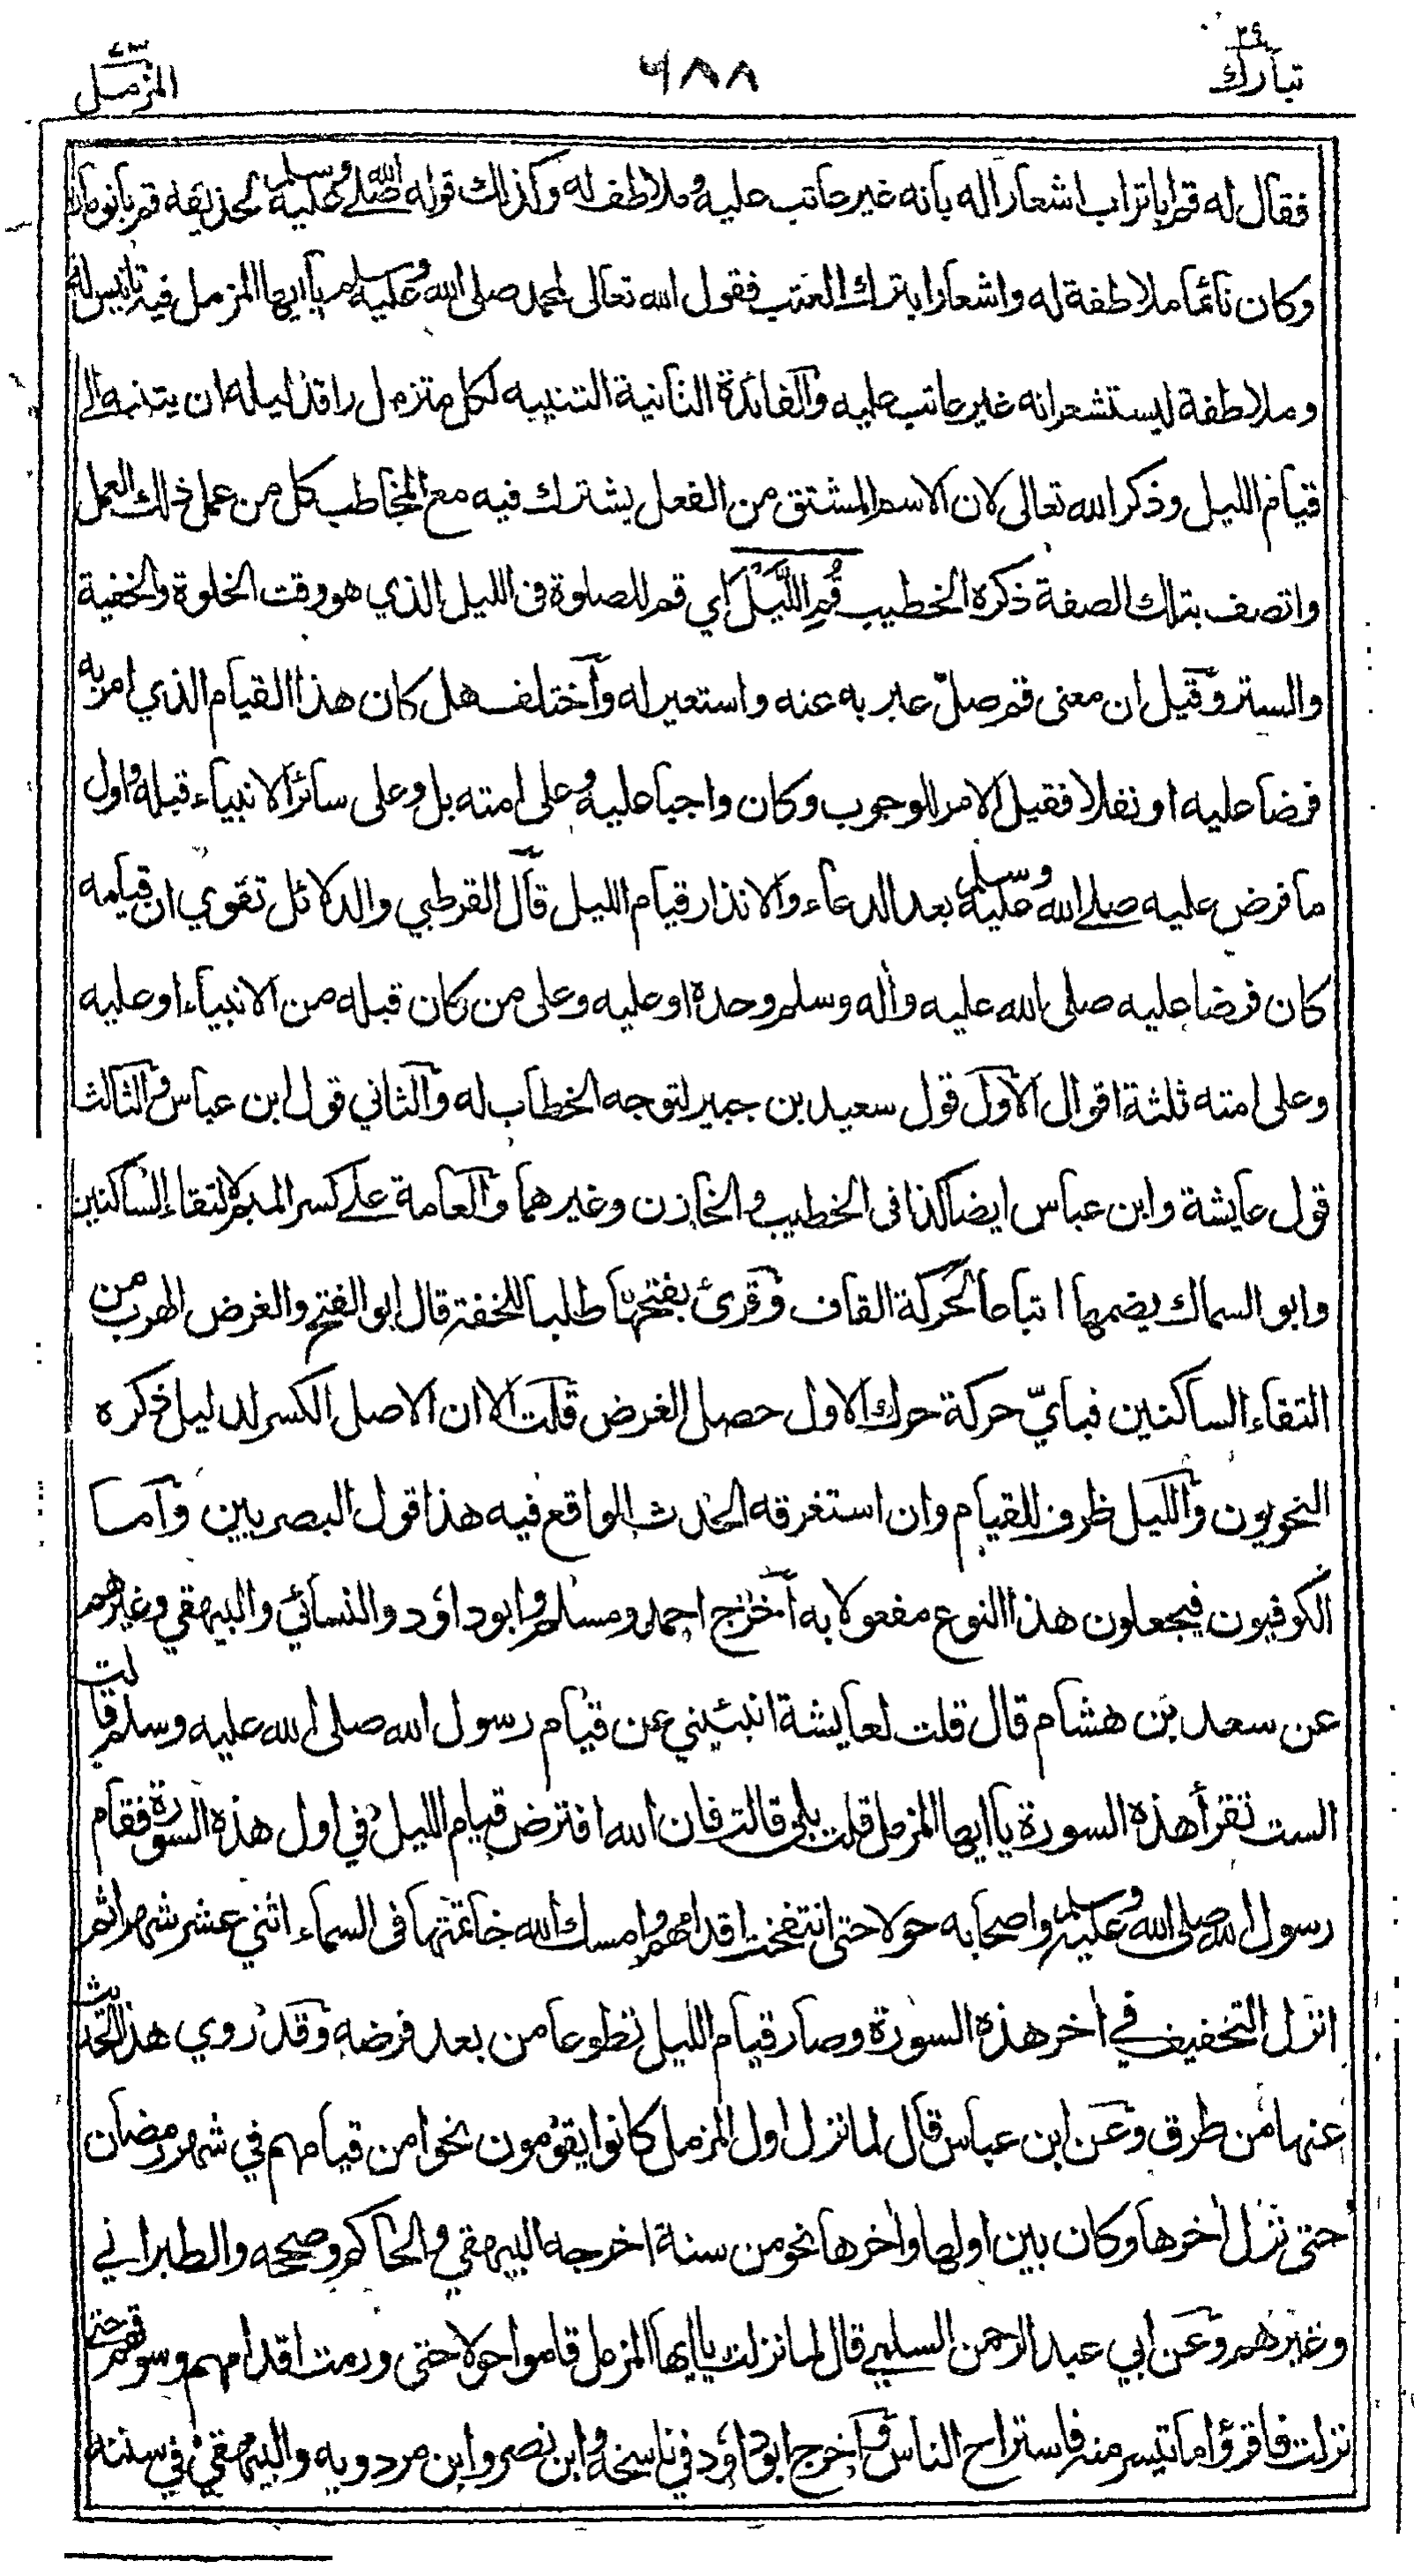 تبارك ٢٩
٦٨٨
المزمل ٧٣
فقال له قم اباتراب اشعارا له بانه غير عاتب عليه وملاطف له وكذلك قوله صلى الله عليه وسلم لحذيفة قم يا نومان
وكان نائما ملاطفة له واشعارا بترك العتب فقول الله تعالى لمحمد صلى الله عليه وسلم يا ايها المزمل فيه تانيس له
وملاطفة ليستشعر انه غير عاتب عليه والفائدة الثانية التنبيه لكل متزمل راقد ليله ان يتنبه الى
قيام الليل وذكر الله تعالى لان الاسم المشتق من الفعل يشترك فيه مع المخاطب كل من عمل ذلك العمل
واتصف بتلك الصفة ذكره الخطيب قُمِ اللَّيْلَ اي قم للصلوة في الليل الذي هو وقت الخلوة والخفية
والستر وقيل ان معنى قم صلّ عبر به عنه واستعير له واختلف هل كان هذا القيام الذي امر به
فرضا عليه او نفلا فقيل الامر للوجوب وكان واجبا عليه وعلى امته بل وعلى سائر الانبياء قبله واول
ما فرض عليه صلى الله عليه وسلم بعد الدعاء والانذار قيام الليل قال القرطبي والدلائل تقوي ان قيامه
كان فرضا عليه صلى الله عليه وأله وسلم وحده او عليه وعلى من كان قبله من الانبياء او عليه
وعلى امته ثلثة اقوال الاول قول سعيد بن جبير لتوجه الخطاب له والثاني قول ابن عباس والثالث
قول عايشة وابن عباس ايضا كذا في الخطيب والخازن وغيرهما والعامة على كسر الميم لالتقاء الساكنين
وابو السماك بضمها اتباعا لحركة القاف وقرئ بفتحها طلبا للخفة قال ابو الفتح والغرض الهرب من
التقاء الساكنين فبايّ حركة حرك الاول حصل الغرض قلت الا ان الاصل الكسر لدليل ذكره
النحويون والليل ظرف للقيام وان استغرقه الحدث الواقع فيه هذا قول البصريين واما
الكوفيون فيجعلون هذا النوع مفعولا به اخرج احمد ومسلم وابوداؤد والنسائي والبيهقي وغيرهم
عن سعد بن هشام قال قلت لعايشة انبئيني عن قيام رسول الله صلى الله عليه وسلم قالت
الست تقرأ هذه السورة يا ايها المزمل قلت بلى قالت فان الله افترض قيام الليل في اول هذه السورة فقام
رسول الله صلى الله عليه وسلم واصحابه حولا حتى انتفخت اقدامهم وامسك الله خاتمتها في السماء اثني عشر شهرا ثم
انزل التخفيف في أخر هذه السورة وصار قيام الليل تطوعا من بعد فرضه وقد روي هذا الحديث
عنها من طرق وعن ابن عباس قال لما نزل اول المزمل كانوا يقومون نحوا من قيامهم في شهر رمضان
حتى نزل أخرها وكان بين اولها وأخرها نحو من سنة اخرجه البيهقي والحاكم وصححه والطبراني
وغيرهم وعن ابي عبد الرحمن السلمي قال لما نزلت يا ايها المزمل قاموا حولا حتى ورمت اقدامهم وسوقهم حتى
نزلت فاقرؤا ما تيسر منه فاستراح الناس واخرج ابوداؤد في ناسخه وابن نصر وابن مردويه والبيهقي في سننه